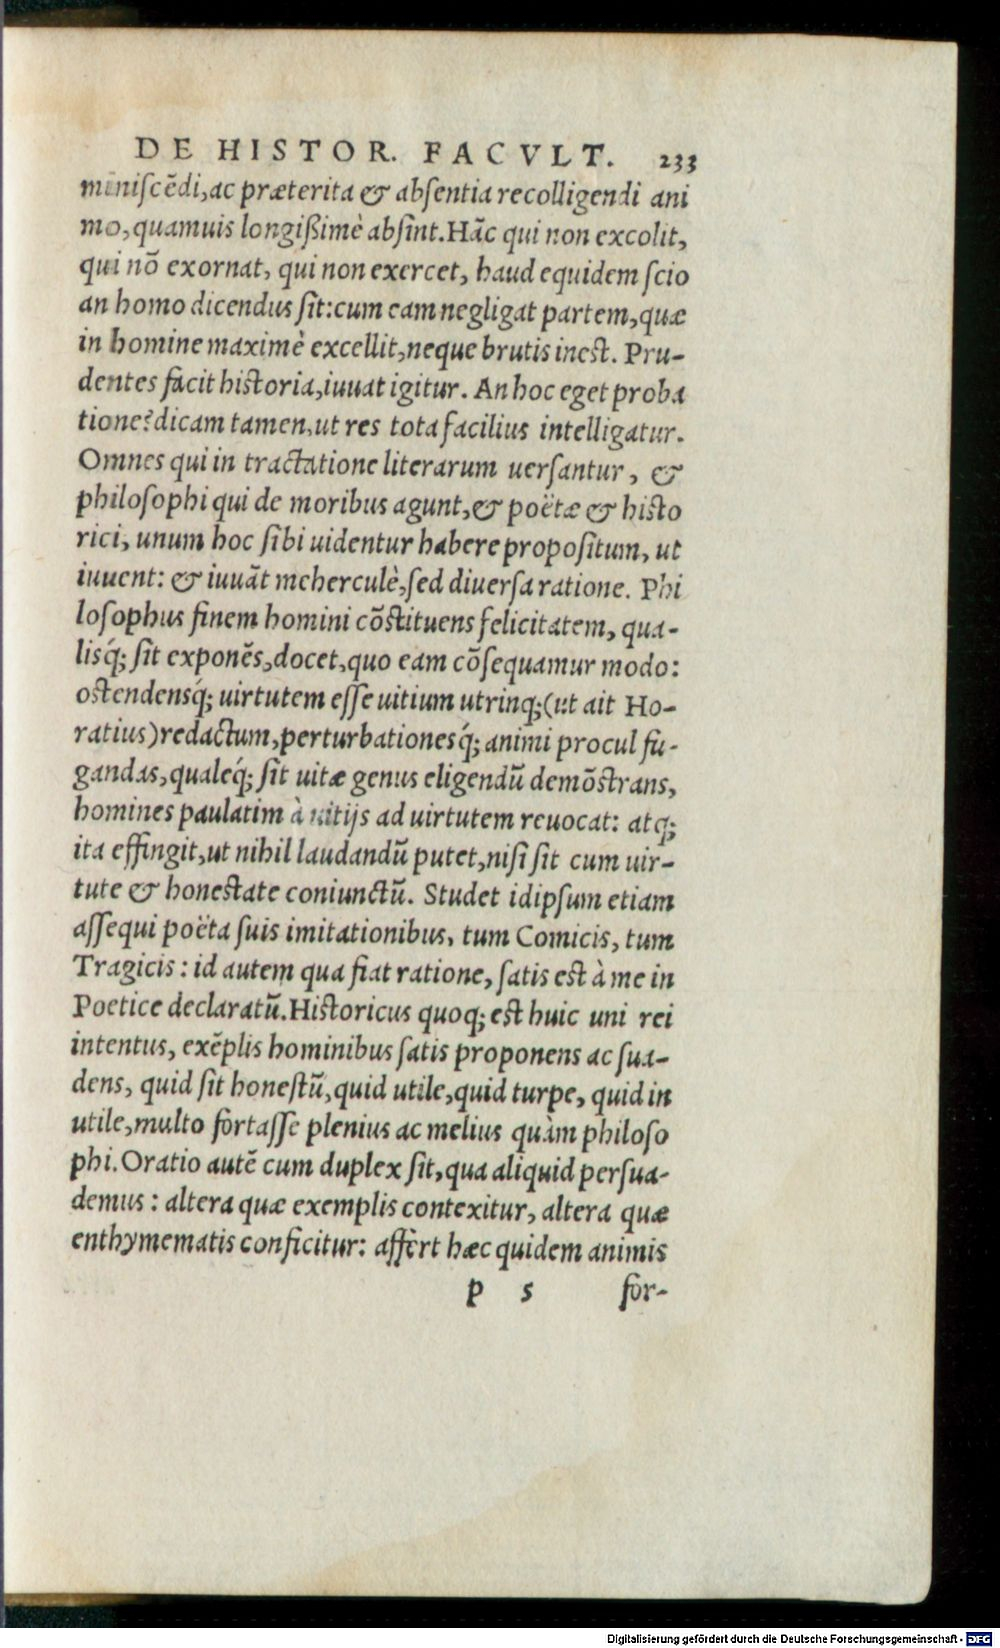 DE HISTOR. FACVLT. 233
miniſcēdi, ac præterita & abſentia recolligendi ani
mo, quamuis longißimè abſint. Hāc qui non excolit,
qui nō exornat, qui non exercet, haud equidem ſcio
an homo dicendus ſit: cum eam negligat partem, quæ
in homine maximè excellit, neque brutis ineſt. Pru-
dentes facit hiſtoria, iuuat igitur. An hoc eget proba
tione? dicam tamen, ut res tota facilius intelligatur.
Omnes qui in tractatione literarum uerſantur, &
philoſophi qui de moribus agunt, & poëtæ & hiſto
rici, unum hoc ſibi uidentur habere propoſitum, ut
iuuent: & iuuāt meherculè, ſed diuerſa ratione. Phi
loſophus finem homini cōſtituens felicitatem, qua-
lisq́; ſit exponēs, docet, quo eam cōſequamur modo:
oſtendensq́; uirtutem eſſe uitium utrinq; (ut ait Ho-
ratius) redactum, perturbationesq́; animi procul fu-
gandas, qualeq́; ſit uitæ genus eligendū demōſtrans,
homines paulatim à uitijs ad uirtutem reuocat: atq;
ita effingit, ut nihil laudandū putet, niſi ſit cum uir-
tute & honeſtate coniunctū. Studet idipſum etiam
aſſequi poëta ſuis imitationibus, tum Comicis, tum
Tragicis: id autem qua fiat ratione, ſatis eſt à me in
Poetice declaratū. Hiſtoricus quoq; eſt huic uni rei
intentus, exēplis hominibus ſatis proponens ac ſua-
dens, quid ſit honeſtū, quid utile, quid turpe, quid in
utile, multo fortaſſe plenius ac melius quàm philoſo
phi. Oratio autē cum duplex ſit, qua aliquid perſua-
demus: altera quæ exemplis contexitur, altera quæ
enthymematis conficitur: affert hæc quidem animis
p 5 for-
Digitalisierung gefördert durch die Deutsche Forschungsgemeinschaft - DFG